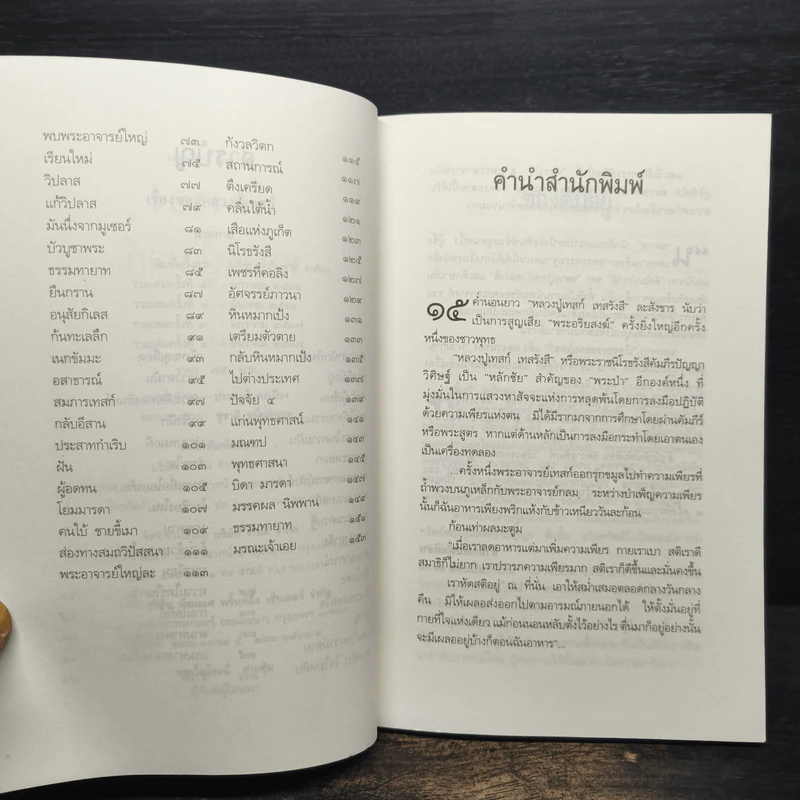 พบพระอาจารย์ใหญ่ ๗๓
เรียนใหม่ ๗๕
วิปลาส ๗๗
แก้วิปลาส ๗๙
มันนิ่งจากมูเซอร์ ๘๑
บัวบูชาพระ ๘๓
ธรรมทายาท ๘๕
ยืนกราน ๘๗
อนุสัยกิเลส ๘๙
ก้นทะเลลึก ๙๑
เนกขัมมะ ๙๓
อสาธารณ์ ๙๕
สมภารเทสก์ ๙๗
กลับอีสาน ๙๙
ประสาทกำเริบ ๑๐๑
ฝัน ๑๐๓
ผู้อดทน ๑๐๕
โยมมารดา ๑๐๗
คนใบ้ ชายขี้เมา ๑๐๙
ส่องทางสมถวิปัสสนา ๑๑๑
พระอาจารย์ใหญ่ละ ๑๑๓
กังวลวิตก ๑๑๕
สถานการณ์ ๑๑๗
ตึงเครียด ๑๑๙
คลื่นใต้น้ำ ๑๒๑
เสือแห่งภูเก็ต ๑๒๓
นิโรธรังสี ๑๒๕
เพชรที่คอลิง ๑๒๗
อัศจรรย์ภาวนา ๑๒๙
หินหมากเป้ง ๑๓๑
เตรียมตัวตาย ๑๓๓
กลับหินหมากเป้ง ๑๓๕
ไปต่างประเทศ ๑๓๗
ปัจจัย ๔ ๑๓๙
แก่นพุทธศาสน์ ๑๔๑
มณฑป ๑๔๓
พุทธศาสนา ๑๔๕
บิดา มารดา ๑๔๗
มรรคผล นิพพาน ๑๔๙
ธรรมทายาท ๑๕๑
มรณะเจ้าเอย ๑๕๓
คำนำสำนักพิมพ์
๑๕ ค่ำนอนยาว "หลวงปู่เทสก์ เทสรังสี" ละสังขาร นับว่า
เป็นการสูญเสีย "พระอริยสงฆ์" ครั้งยิ่งใหญ่อีกครั้ง
หนึ่งของชาวพุทธ
"หลวงปู่เทสก์ เทสรังสี" หรือพระราชนิโรธรังสีคัมภีรปัญญา
วิศิษฐ์ เป็น "หลักชัย" สำคัญของ "พระป่า" อีกองค์หนึ่ง ที่
มุ่งมั่นในการแสวงหาสัจจะแห่งการหลุดพ้นโดยการลงมือปฏิบัติ
ด้วยความเพียรแห่งตน มิได้มีรากมาจากการศึกษาโดยผ่านคัมภีร์
หรือพระสูตร หากแต่ด้านหลักเป็นการลงมือกระทำโดยเอาตนเอง
เป็นเครื่องทดลอง
...ครั้งหนึ่งพระอาจารย์เทสก์ออกรุกขมูลไปทำความเพียรที่
ถ้ำพวงบนภูเหล็กกับพระอาจารย์กลม ระหว่างบำเพ็ญความเพียร
นั้นก็ฉันอาหารเพียงพริกแห้งกับข้าวเหนียววันละก้อน
ก้อนเท่าผลมะตูม
"เมื่อเราลดอาหารแต่มาเพิ่มความเพียร กายเราเบา สติเราดี
สมาธิก็ไม่ยาก เราปรารภความเพียรมาก สติเราก็ดีขึ้นและมั่นคงขึ้น
เราหัดสติอยู่ ณ ที่นั่น เอาให้สม่ำเสมอตลอดกลางวันกลาง
คืน มิให้เผลอส่งออกไปตามอารมณ์ภายนอกได้ ให้ตั้งมั่นอยู่ที่
กายที่ใจแห่งเดียว แม้ก่อนนอนหลับตั้งไว้อย่างไร ตื่นมาก็อยู่อย่างนั้น
จะมีเผลออยู่บ้างก็ตอนฉันอาหาร"...